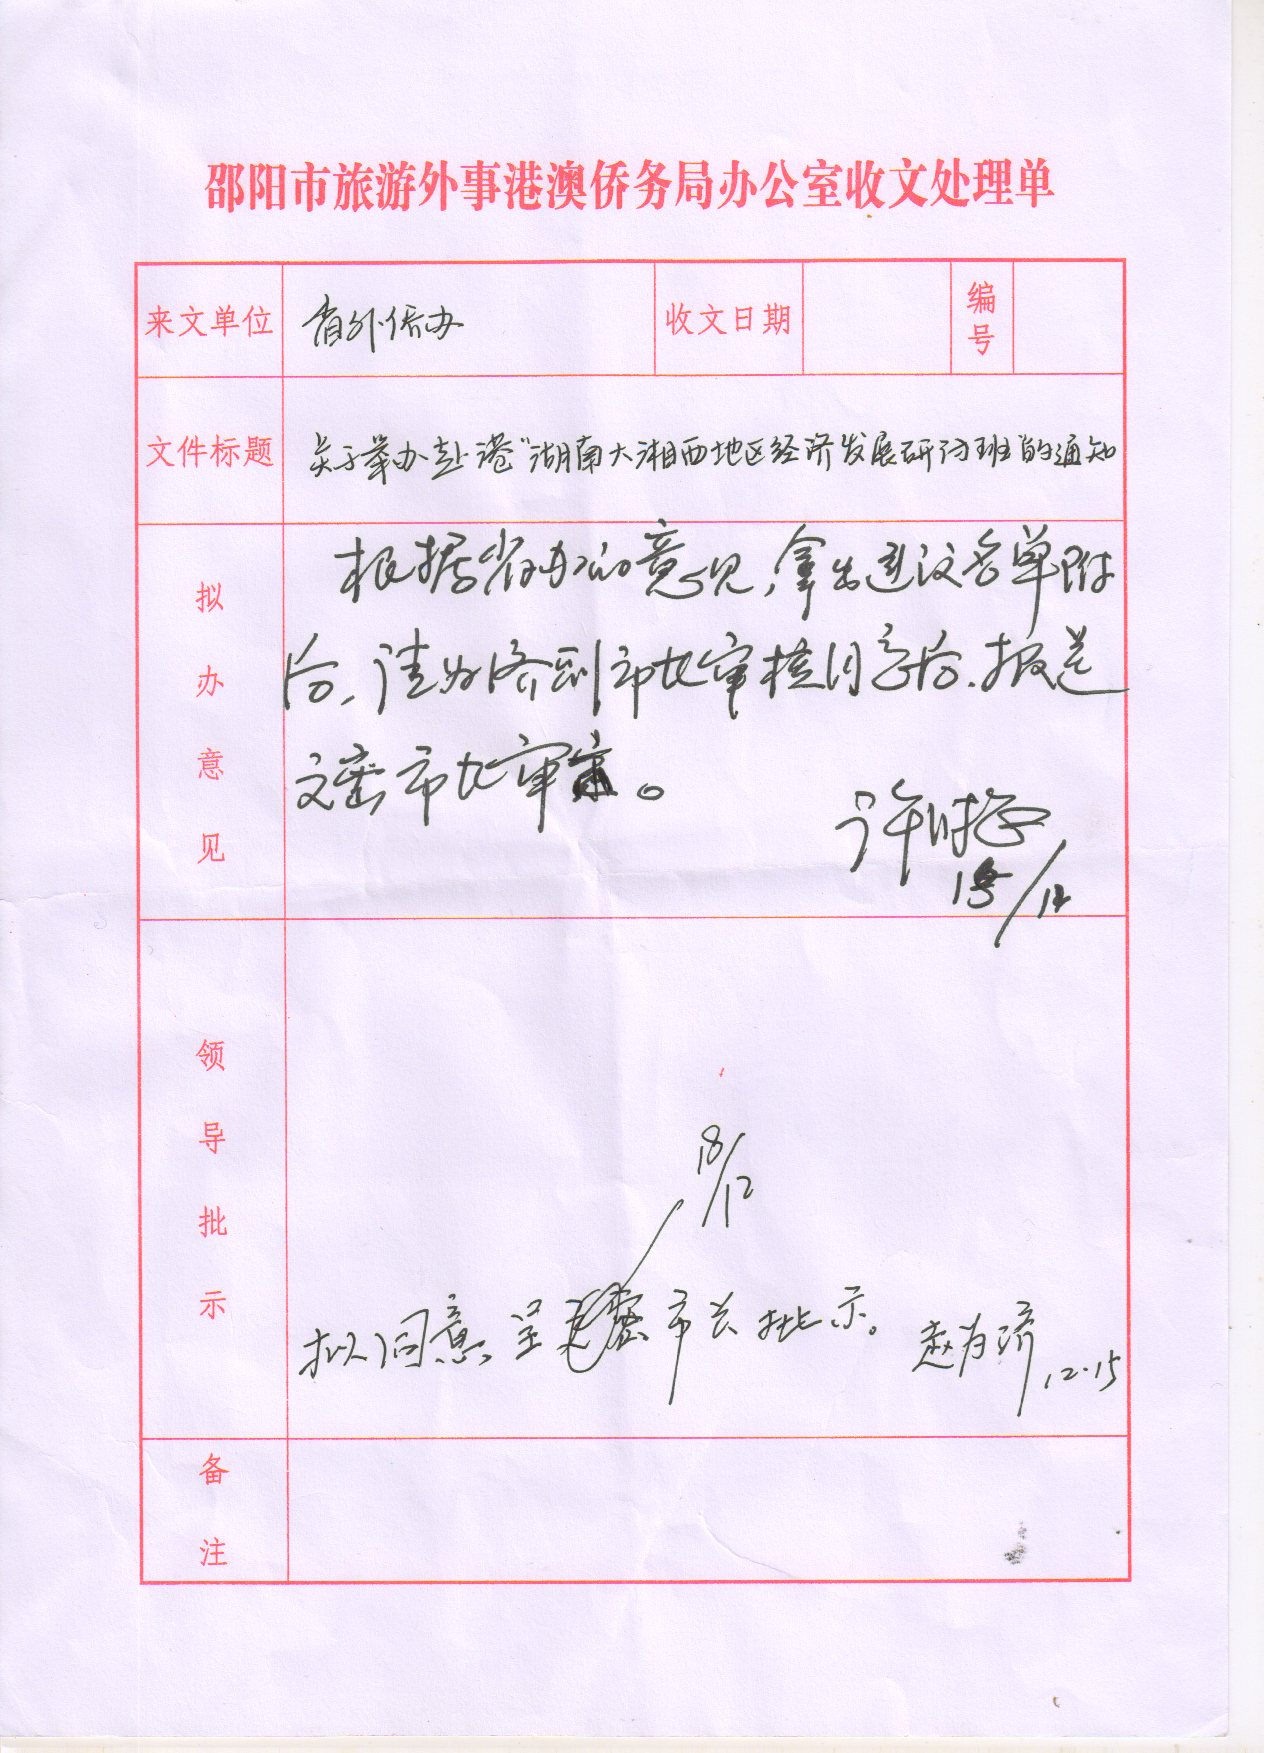 邵阳市旅游外事港澳侨务局办公室收文处理单
来文单位 省外侨办 收文日期 编号
文件标题 关于举办赴港“湖南大湘西地区经济发展研讨班”的通知
拟办意见
根据省办的意见，拿出建议名单附
后，请为济副市长审核同意后，报送
文蜜市长审定。
许
15/12
领导批示
18/12
拟同意，呈 市长批示。 赵为济 12.15
备注